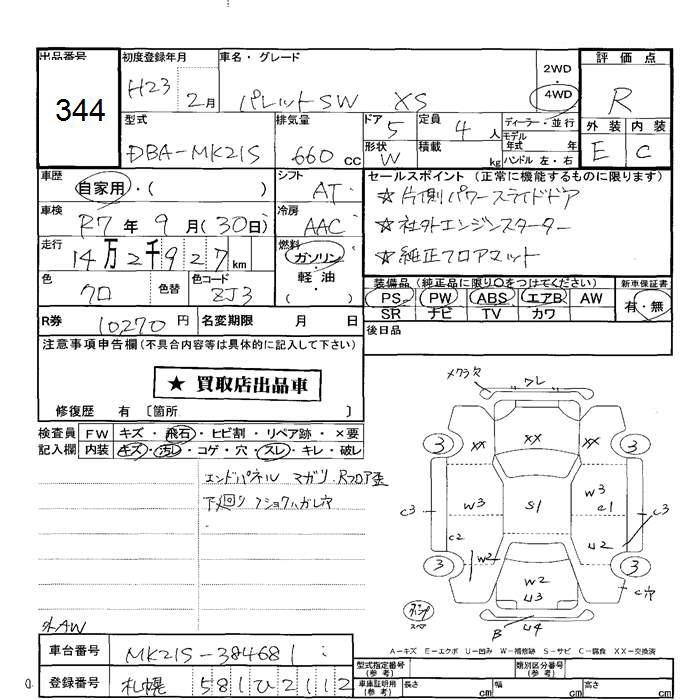 出品番号
344
初度登録年月
H23 2月
車名・グレード
パレットSW XS
2WD
・
4WD
評価点
R
型式
DBA-MK21S
排気量
660 cc
ドア
5
形状
W
定員
4 人
積載
kg
ディーラー・並行
モデル
年式 年
ハンドル 左・右
外装 内装
E C
車歴
自家用・( )
シフト
AT
車検
R7 年 9 月(30日)
冷房
AAC
走行
14万2千927 km
燃料
ガソリン
・
軽油
( )
色
クロ
色替
色コード
ZJ3
R券
10270 円
名変期限 月 日
セールスポイント (正常に機能するものに限ります)
☆片側パワースライドドア
☆社外エンジンスターター
☆純正フロアマット
装備品 (純正品に限り○をつけてください)
PS PW ABS エアB AW
SR ナビ TV カワ
新車保証書
有・無
後日品
注意事項申告欄 (不具合内容等は具体的に記入して下さい)
★ 買取店出品車
修復歴 有 〔箇所 〕
検査員
記入欄
FW キズ・飛石・ヒビ割・リペア跡・×要
内装 キズ・汚レ・コゲ・穴・スレ・キレ・破レ
エンドパネル マガリ・Rフロア歪
下廻り
メクラ穴
ワレ
3
XX
XX
XX
3
W3
S1
W3
e1
C3
C3
C2
W2
U2
3
W2
U3
3
C穴
B
U4
スペア
外AW
A-キズ E-エクボ U-凹み W-補修跡 S-サビ C-腐食 XX-交換済
車台番号
MK21S-384681
登録番号
札幌 581ひ2112
型式指定番号
(参考)
類別区分番号
(参考)
車庫証明用
(参考)
長さ cm
幅 cm
高さ cm